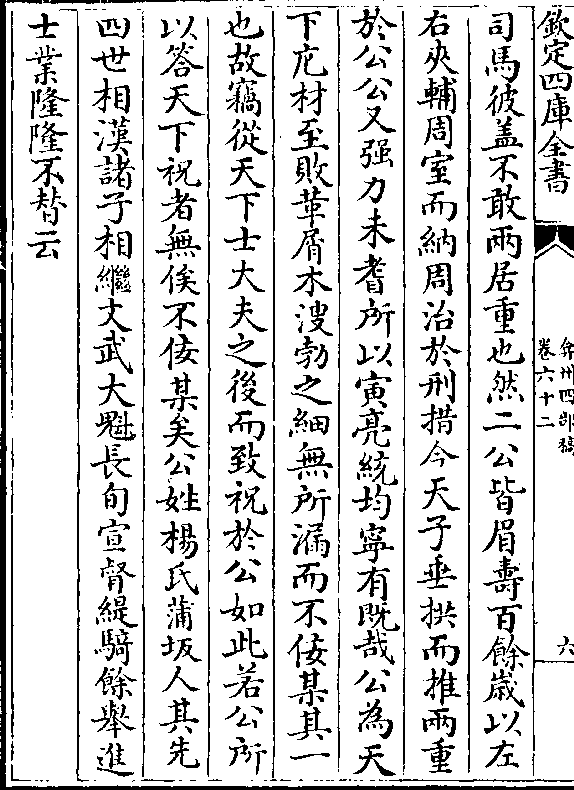 欽定四庫全書
弇州四部稿
卷六十二
六
司馬彼盖不敢兩居重也然二公皆眉壽百餘歲以左
右夾輔周室而納周治於刑措今天子垂拱而推兩重
於公公又强力未耆所以寅亮統均寧有既哉公為天
下庀材至敗革屑木溲勃之細無所漏而不佞某其一
也故竊從天下士大夫之後而致祝於公如此若公所
以答天下祝者無俟不佞某矣公姓楊氏蒲坂人其先
四世相漢諸子相繼文武大魁長旬宣督緹騎餘舉進
士業隆隆不替云